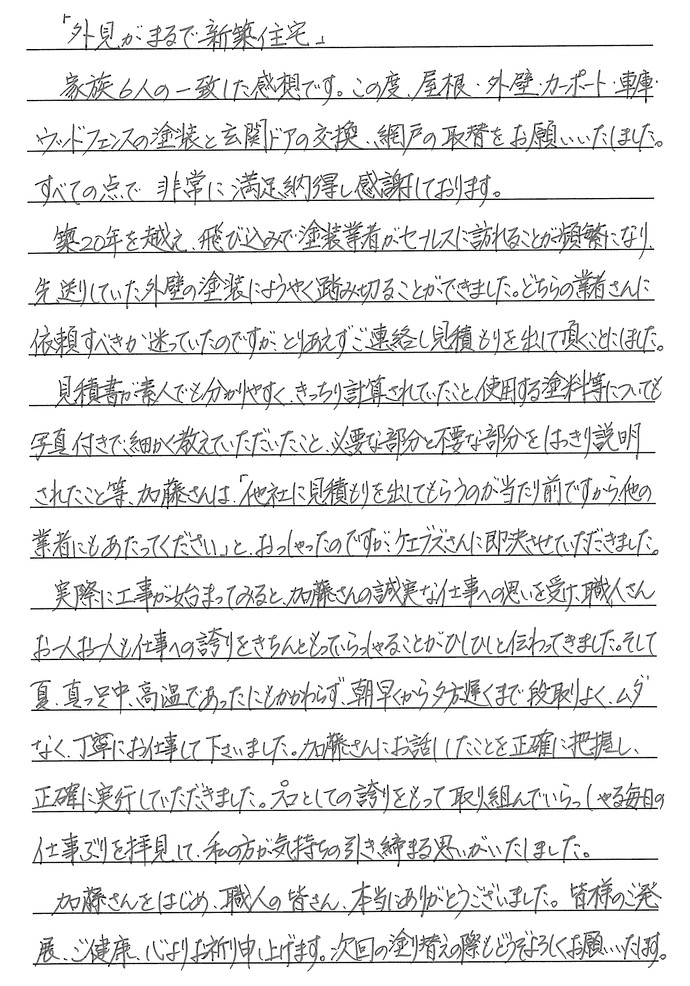 「外見がまるで新築住宅」
家族6人の一致した感想です。この度、屋根・外壁・カーポート・車庫・
ウッドフェンスの塗装と玄関ドアの交換、網戸の取替をお願いいたしました。
すべての点で 非常に満足納得し感謝しております。
築20年を越え、飛び込みで塗装業者がセールスに訪れることが頻繁になり、
先送りしていた外壁の塗装にようやく踏み切ることができました。どちらの業者さんに
依頼すべきか迷っていたのですが、とりあえずご連絡し見積もりを出して頂くことにしました。
見積書が素人でも分かりやすく、きっちり計算されていたこと、使用する塗料等についても
写真付きで細かく教えていただいたこと、必要な部分と不要な部分をはっきり説明
されたこと等、加藤さんは、「他社に見積もりを出してもらうのが当たり前ですから、他の
業者にもあたってください」と、おっしゃったのですが、ケエブズさんに即決させていただきました。
実際に工事が始まってみると、加藤さんの誠実な仕事への思いを受け、職人さん
お一人お一人も仕事への誇りをきちんともっていらっしゃることがひしひしと伝わってきました。そして
夏、真っ只中、高温であったにもかかわらず、朝早くから夕方遅くまで段取りよく、ムダ
なく、丁寧にお仕事して下さいました。加藤さんにお話ししたことを正確に把握し、
正確に実行していただきました。プロとしての誇りをもって取り組んでいらっしゃる毎日の
仕事ぶりを拝見して、私の方が気持ちの引き締まる思いがいたしました。
加藤さんをはじめ、職人の皆さん、本当にありがとうございました。皆様のご発
展、ご健康、心よりお祈り申し上げます。次回の塗り替えの際もどうぞよろしくお願いいたします。